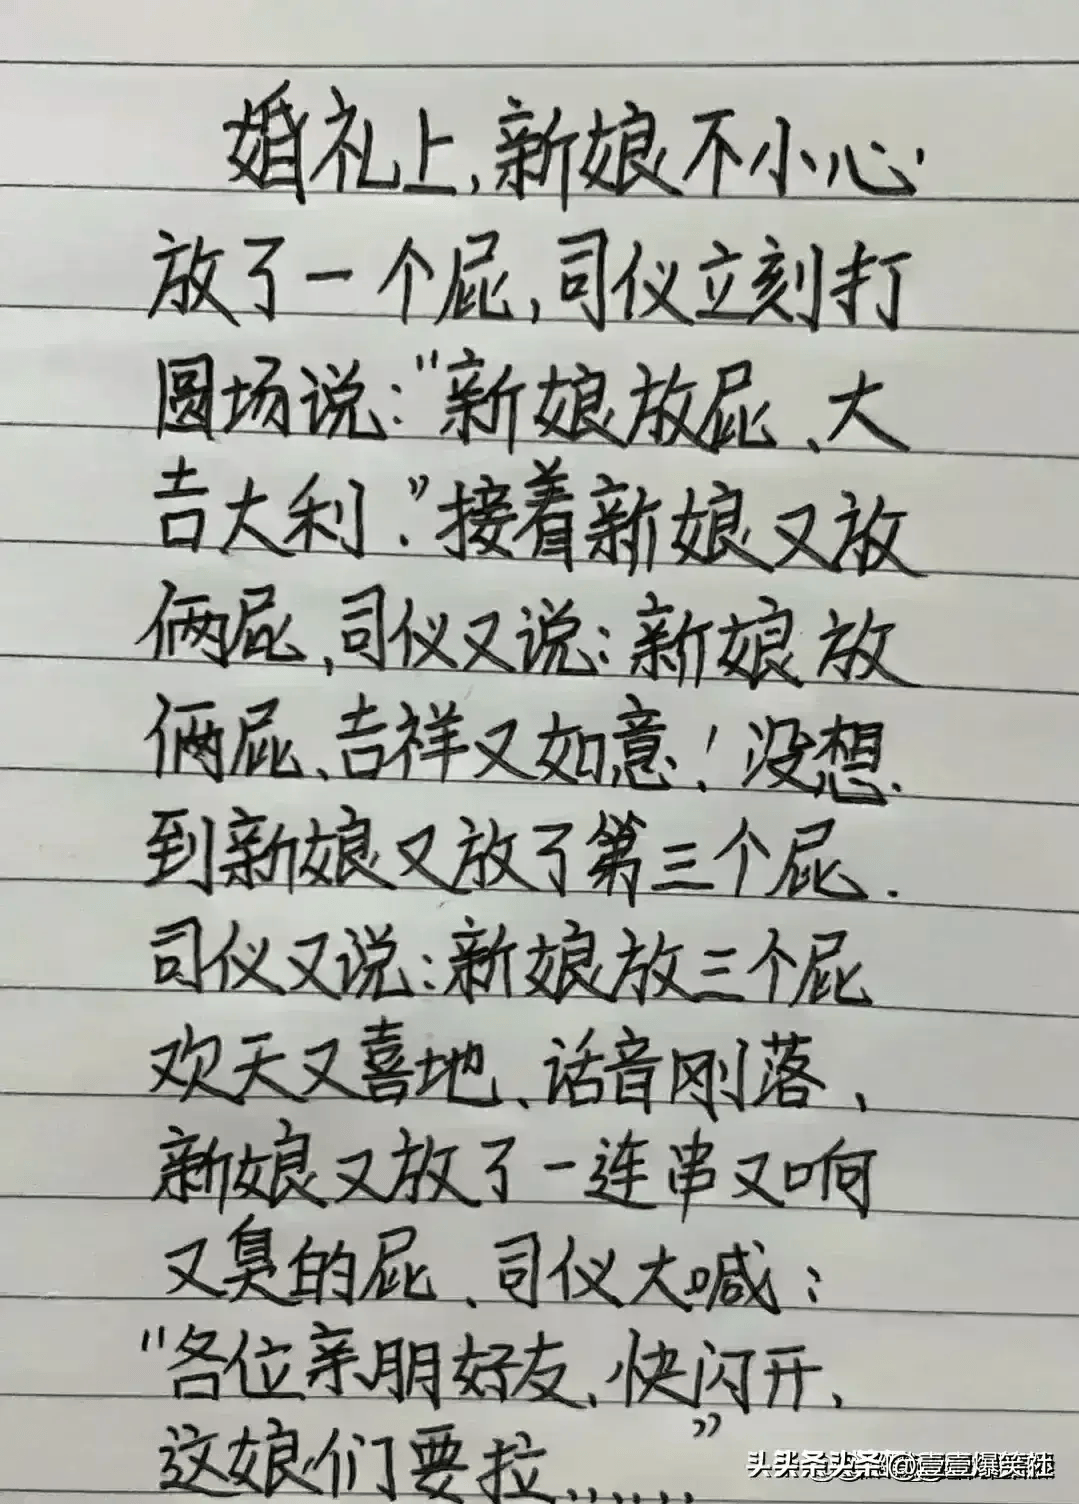 婚礼上,新娘不小心
放了一个屁,司仪立刻打
圆场说:"新娘放屁、大
吉大利."接着新娘又放
俩屁,司仪又说:新娘放
俩屁、吉祥又如意!没想
到新娘又放了第三个屁.
司仪又说:新娘放三个屁
欢天又喜地、话音刚落、
新娘又放了一连串又响
又臭的屁、司仪大喊:
"各位亲朋好友、快闪开、
这娘们要拉......"
头条 @壹壹爆笑社